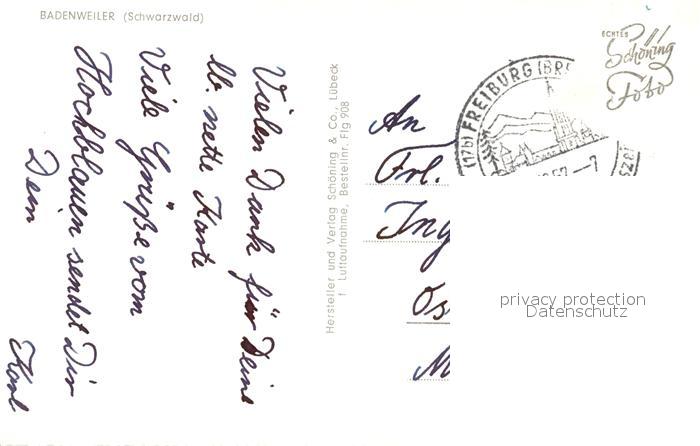 BADENWEILER (Schwarzwald)
Vielen Dank für Deine
lb. nette Karte
Viele Grüße vom
Hochblauen sendet Dir
Dein
Karl
Hersteller und Verlag Schöning & Co., Lübeck
† Luftaufnahme, Bestellnr. Flg 908
ECHTES
Schöning
Foto
(17b) FREIBURG (BR
An
Frl.
Ing
Os
M
privacy protection
Datenschutz